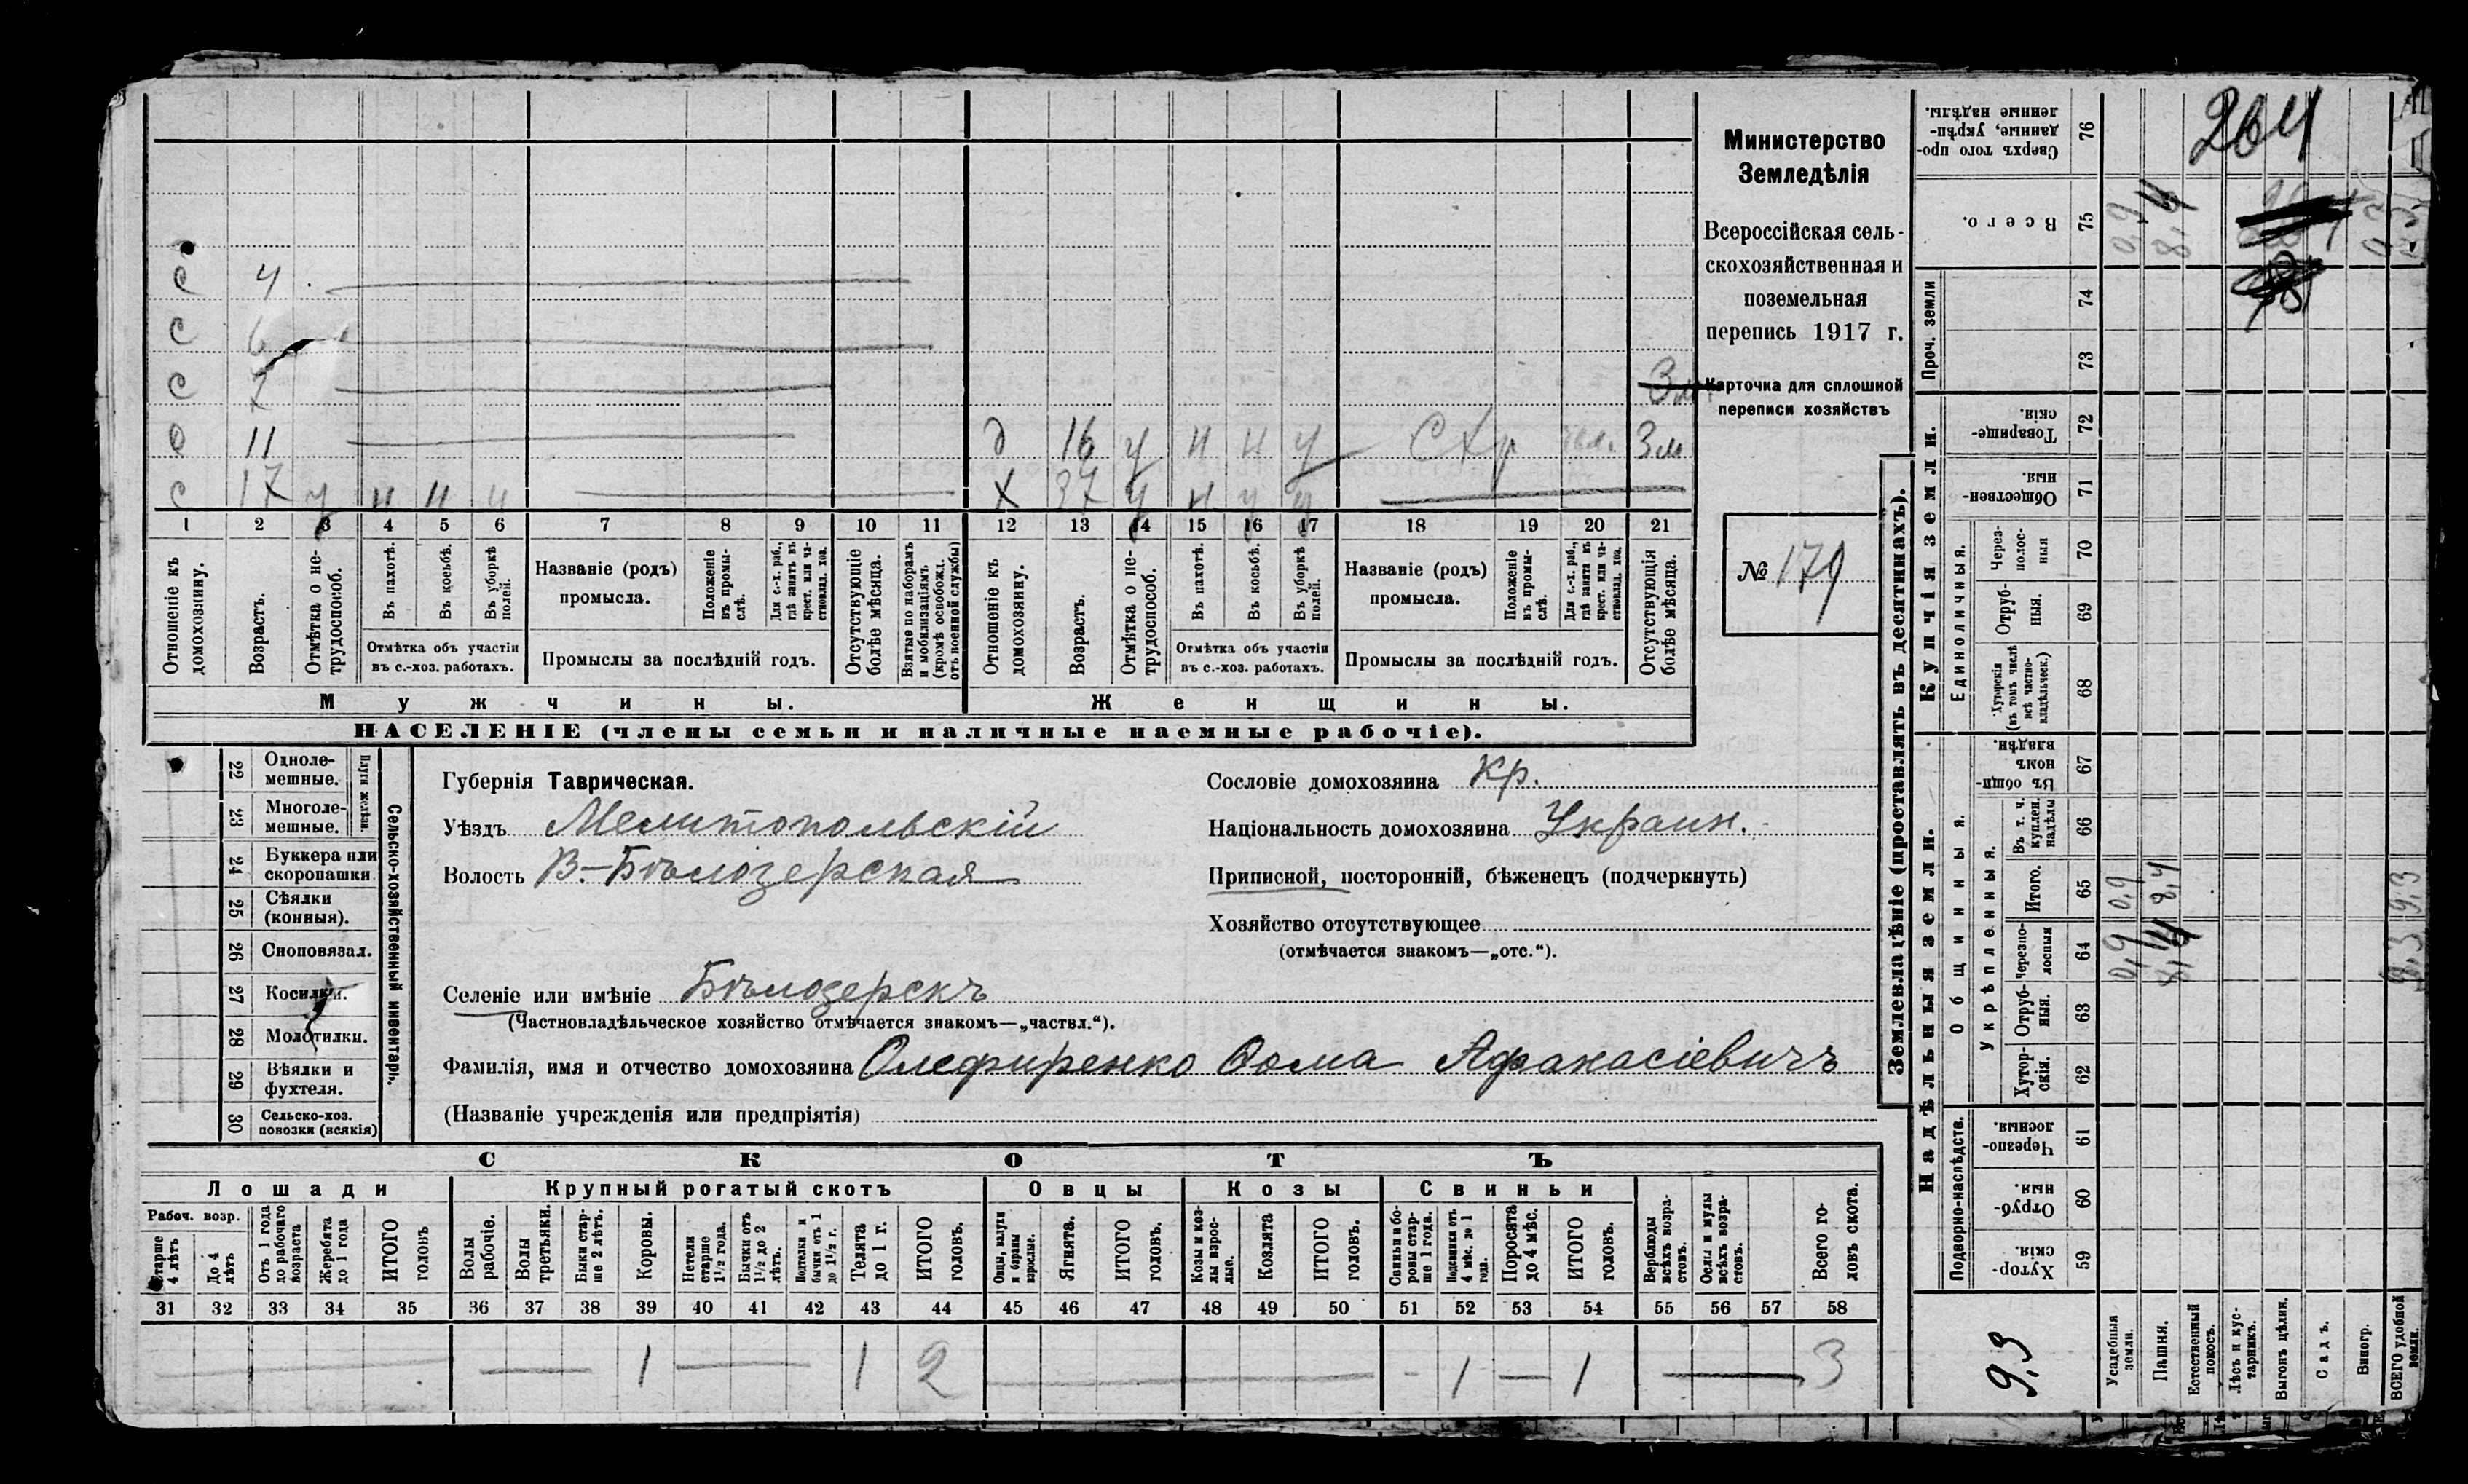 Министерство
Земледѣлія
Всероссійская сель-
скохозяйственная и
поземельная
перепись 1917 г.
Карточка для сплошной
переписи хозяйствъ
№ 179
264
С 4
С 6
С 7
С 11 д 16 у н н у СХр 3м
С 17 у н н н Х 37 у н у у
1 2 3 4 5 6 7 8 9 10 11 12 13 14 15 16 17 18 19 20 21
Отношеніе къ домохозяину.
Возрастъ.
Отмѣтка о не-трудоспособ.
Въ пахотѣ.
Въ косьбѣ.
Въ уборкѣ полей.
Отмѣтка объ участіи
въ с.-хоз. работахъ.
Названіе (родъ)
промысла.
Положеніе въ промы-слѣ.
Для с.-х. раб., гдѣ занятъ въ крест. или ча-стновлад. хоз.
Промыслы за послѣдній годъ.
Отсутствующіе болѣе мѣсяца.
Взятые по наборамъ и мобилизаціямъ (кромѣ освобожд. отъ военной службы)
Отношеніе къ домохозяину.
Возрастъ.
Отмѣтка о не-трудоспособ.
Въ пахотѣ.
Въ косьбѣ.
Въ уборкѣ полей.
Отмѣтка объ участіи
въ с.-хоз. работахъ.
Названіе (родъ)
промысла.
Положеніе въ промы-слѣ.
Для с.-х. раб., гдѣ занята въ крест. или ча-стновлад. хоз.
Промыслы за послѣдній годъ.
Отсутствующія болѣе мѣсяца.
Мужчины. Женщины.
НАСЕЛЕНІЕ (члены семьи и наличные наемные рабочіе).
22 Одноле-мешные.
23 Многоле-мешные.
Плуги желѣзн.
24 Буккера или скоропашки
25 Сѣялки (конныя).
26 Сноповязал.
27 Косилки.
28 Молотилки.
29 Вѣялки и фухтеля.
30 Сельско-хоз. повозки (всякія)
Сельско-хозяйственный инвентарь.
Губернія Таврическая.
Уѣздъ Мелитопольскій
Волость В.-Бѣлозерская
Сословіе домохозяина Кр.
Національность домохозяина Украин.
Приписной, посторонній, бѣженецъ (подчеркнуть)
Хозяйство отсутствующее
(отмѣчается знакомъ—„отс.“).
Селеніе или имѣніе Бѣлозерскъ
(Частновладѣльческое хозяйство отмѣчается знакомъ—„частвл.“).
Фамилія, имя и отчество домохозяина Олефиренко Ѳома Афанасіевичъ
(Названіе учрежденія или предпріятія)
СКОТЪ
Лошади Крупный рогатый скотъ Овцы Козы Свиньи
Рабоч. возр.
Старше 4 лѣтъ
До 4 лѣтъ
Отъ 1 года до рабочаго возраста
Жеребята до 1 года
ИТОГО головъ
Волы рабочіе.
Волы третьяки.
Быки стар-ше 2 лѣтъ.
Коровы.
Нетели старше 1½ года.
Бычки отъ 1½ до 2 лѣтъ.
Подтелки и бычки отъ 1 до 1½ г.
Телята до 1 г.
ИТОГО головъ.
Овцы, валухи и бараны взрослые.
Ягнята.
ИТОГО головъ.
Козы и коз-лы взрос-лые.
Козлята
ИТОГО головъ.
Свиньи и бо-ровы стар-ше 1 года.
Подсвинки отъ 4 мѣс. до 1 года.
Поросята до 4 мѣс.
ИТОГО головъ.
Верблюды всѣхъ возра-стовъ.
Ослы и мулы всѣхъ возра-стовъ.
Всего го-ловъ скота.
31 32 33 34 35 36 37 38 39 40 41 42 43 44 45 46 47 48 49 50 51 52 53 54 55 56 57 58
1 1 2 1 1 3
Землевладѣніе (проставлять въ десятинахъ).
Купчія земли.
Надѣльныя земли.
Сверхъ того про-данные, укрѣп-ленные надѣлы. 76
Всего. 75 0,9
Проч. земли 74 73
Товарище-скія. 72
Обществен-ныя. 71
Единоличныя.
Через-полос-ныя 70
Отруб-ныя. 69
Хуторскія (въ томъ числѣ всѣ частно-владѣльческ.) 68
Общинныя.
Въ общин-номъ владѣн. 67
Укрѣпленныя.
Въ т. ч. куплен. надѣлы 66
Итого. 65 0,9 8,4 9,3
Черезпо-лосныя 64 0,9 8,4 9,3
Отруб-ныя. 63
Хутор-скія. 62
Подворно-наслѣдств.
Черезпо-лосныя. 61
Отруб-ныя. 60
Хутор-скія. 59
9,3
Усадебныя земли.
Пашня.
Естественный покосъ.
Лѣсъ и кус-тарникъ.
Выгонъ цѣлин.
Садъ.
Виногр.
ВСЕГО удобной земли.